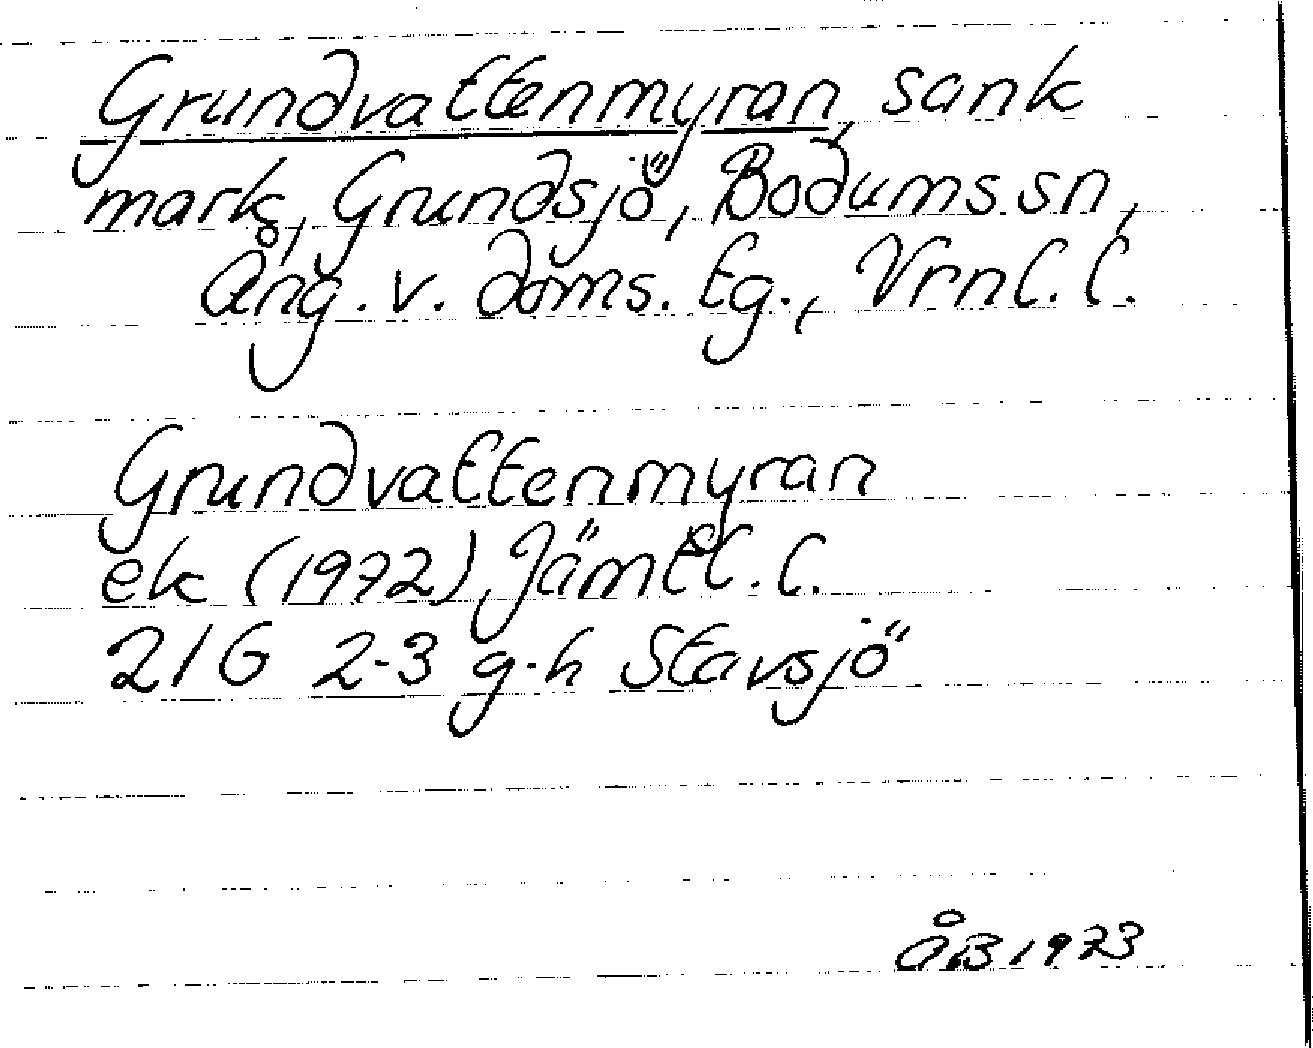 Grundvattenmyran, sank
mark, Grundsjö, Bodums sn,
Ång. v. doms. tg., Vrnl. l.
Grundvattenmyran
ek (1972) Jämtl. l.
21G 2-3 g-h Stavsjö
ÅB 1973